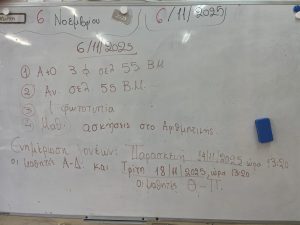 6 Νοέμβριου (6/11/2025)
6/11/2025
① Α+Ο 3 φ σελ 55 Β.Μ.
② Αν. σελ 55 Β.Μ.
③ 1 φωτοτυπία
④ Μαθ: ασκησεις στο Αριθμητικής.
Ενημέρωση γονέων: Παρασκευη 14/11/2025 ώρα 13:20
οι μαθητές Α-Δ. και Τρίτη 18/11/2025, ώρα 13:20
οι μαθητές Θ-Π.